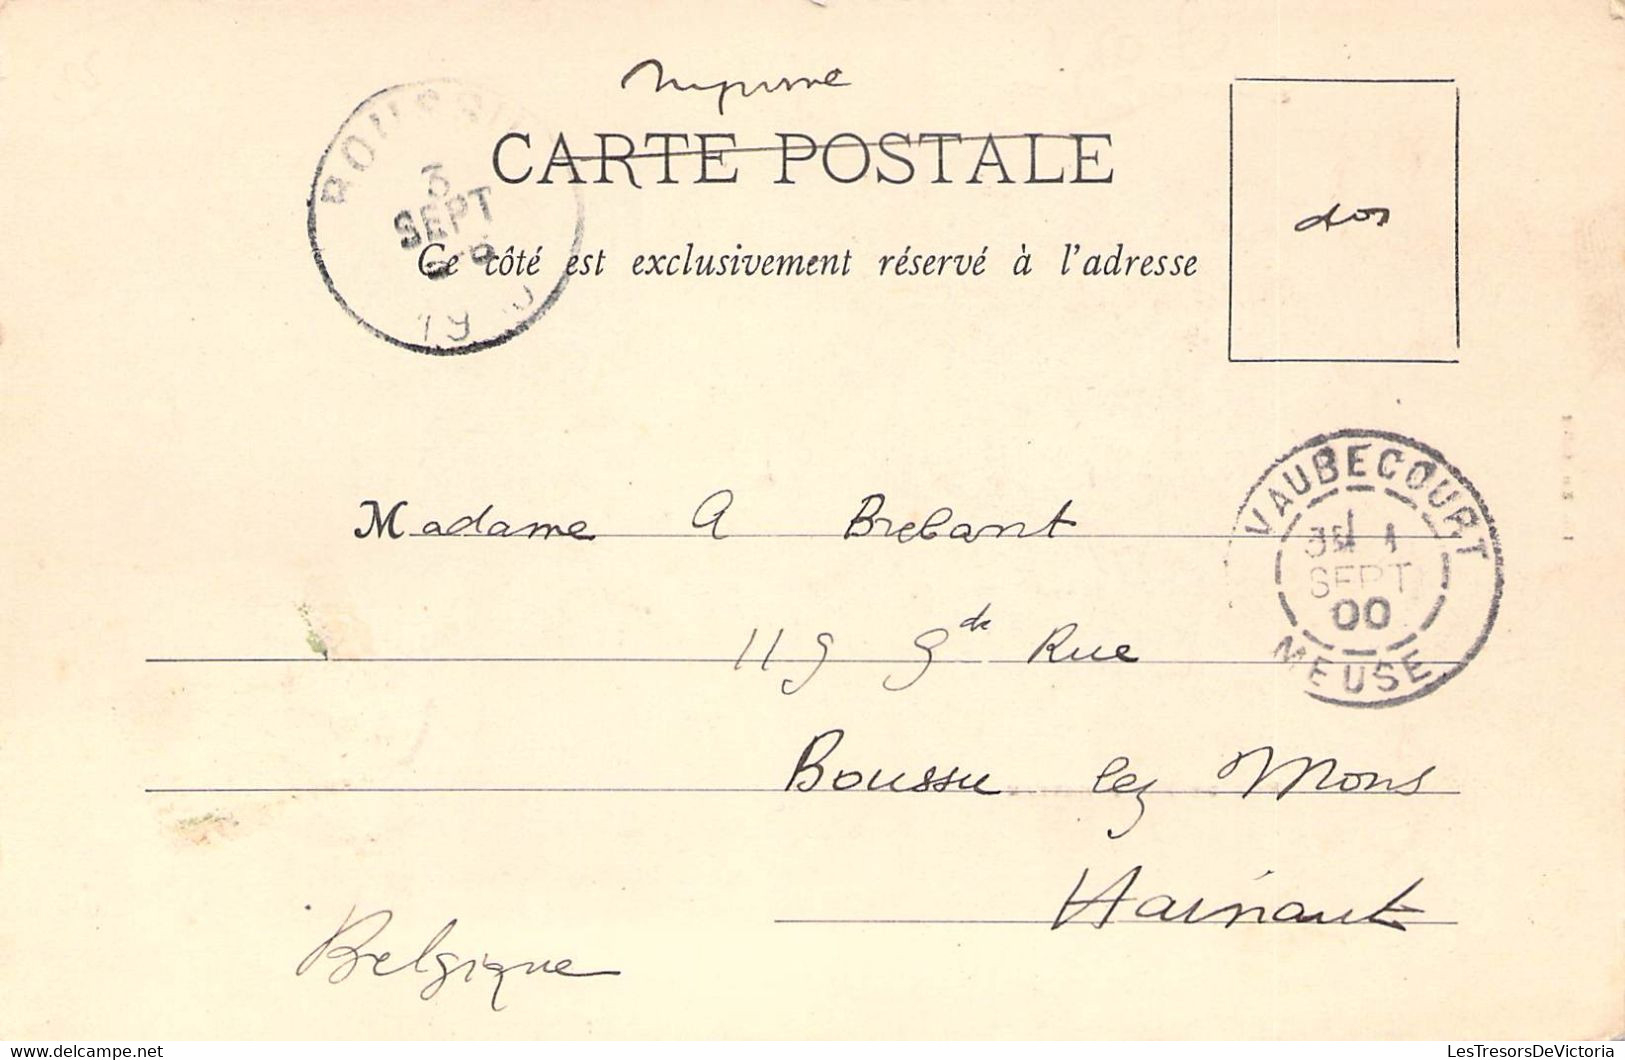 Imprimé
CARTE POSTALE
BOUSSU
3
SEPT
Ce côté est exclusivement réservé à l'adresse
dos
VAUBECOURT
1
SEPT
00
MEUSE
Madame A Brebant
119 Gde Rue
Boussu lez Mons
Hainaut
Belgique
LesTresorsDeVictoria